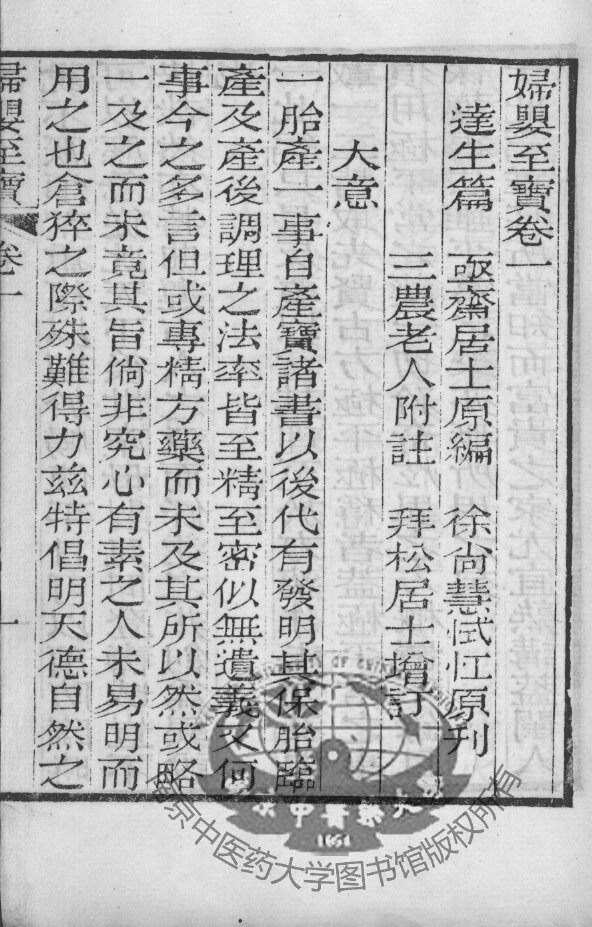 婦嬰至寶卷一
達生篇 亟齋居士原編 徐尙慧恜恇原刊
三農老人附註 拜松居士增訂
大意
一胎產一事自產寶諸書以後代有發明其保胎臨
產及產後調理之法率皆至精至密似無遺義又何
事今之多言但或專精方藥而未及其所以然或略
一及之而未竟其旨倘非究心有素之人未易明而
用之也倉猝之際殊難得力玆特倡明天德自然之
婦嬰至寶 卷一 一
南京中医药大学图书馆版权所有
1954